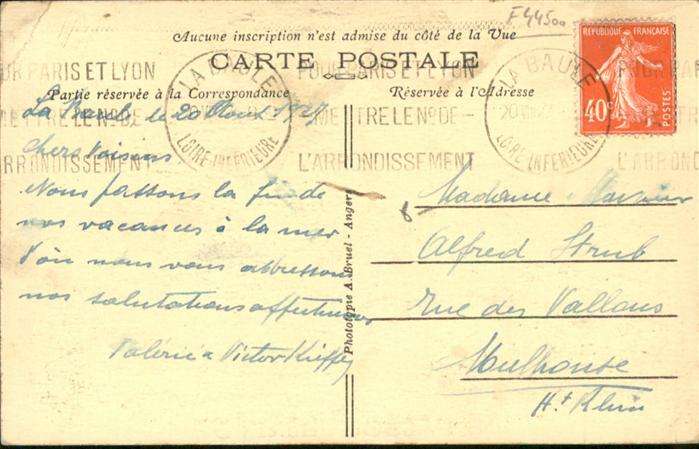 F 44500
Aucune inscription n'est admise du côté de la Vue
CARTE POSTALE
Partie réservée à la Correspondance
Réservée à l'Adresse
RÉPUBLIQUE FRANÇAISE
40c
POSTES
LA BAULE
LOIRE INFERIEURE
POUR PARIS ET LYON
METTRE LE No DE
L'ARRONDISSEMENT
LA BAULE
20
LOIRE INFERIEURE
La Baule le 20 Août 1927
Chers Voisins
Nous passons la fin de
nos vacances à la mer
d'où nous vous adressons
nos salutations affectueuses
Valérie & Victor Kieffer
Phototypie A. Bruel - Angers
Madame
Alfred Strub
rue des Vallons
Mulhouse
Ht Rhin